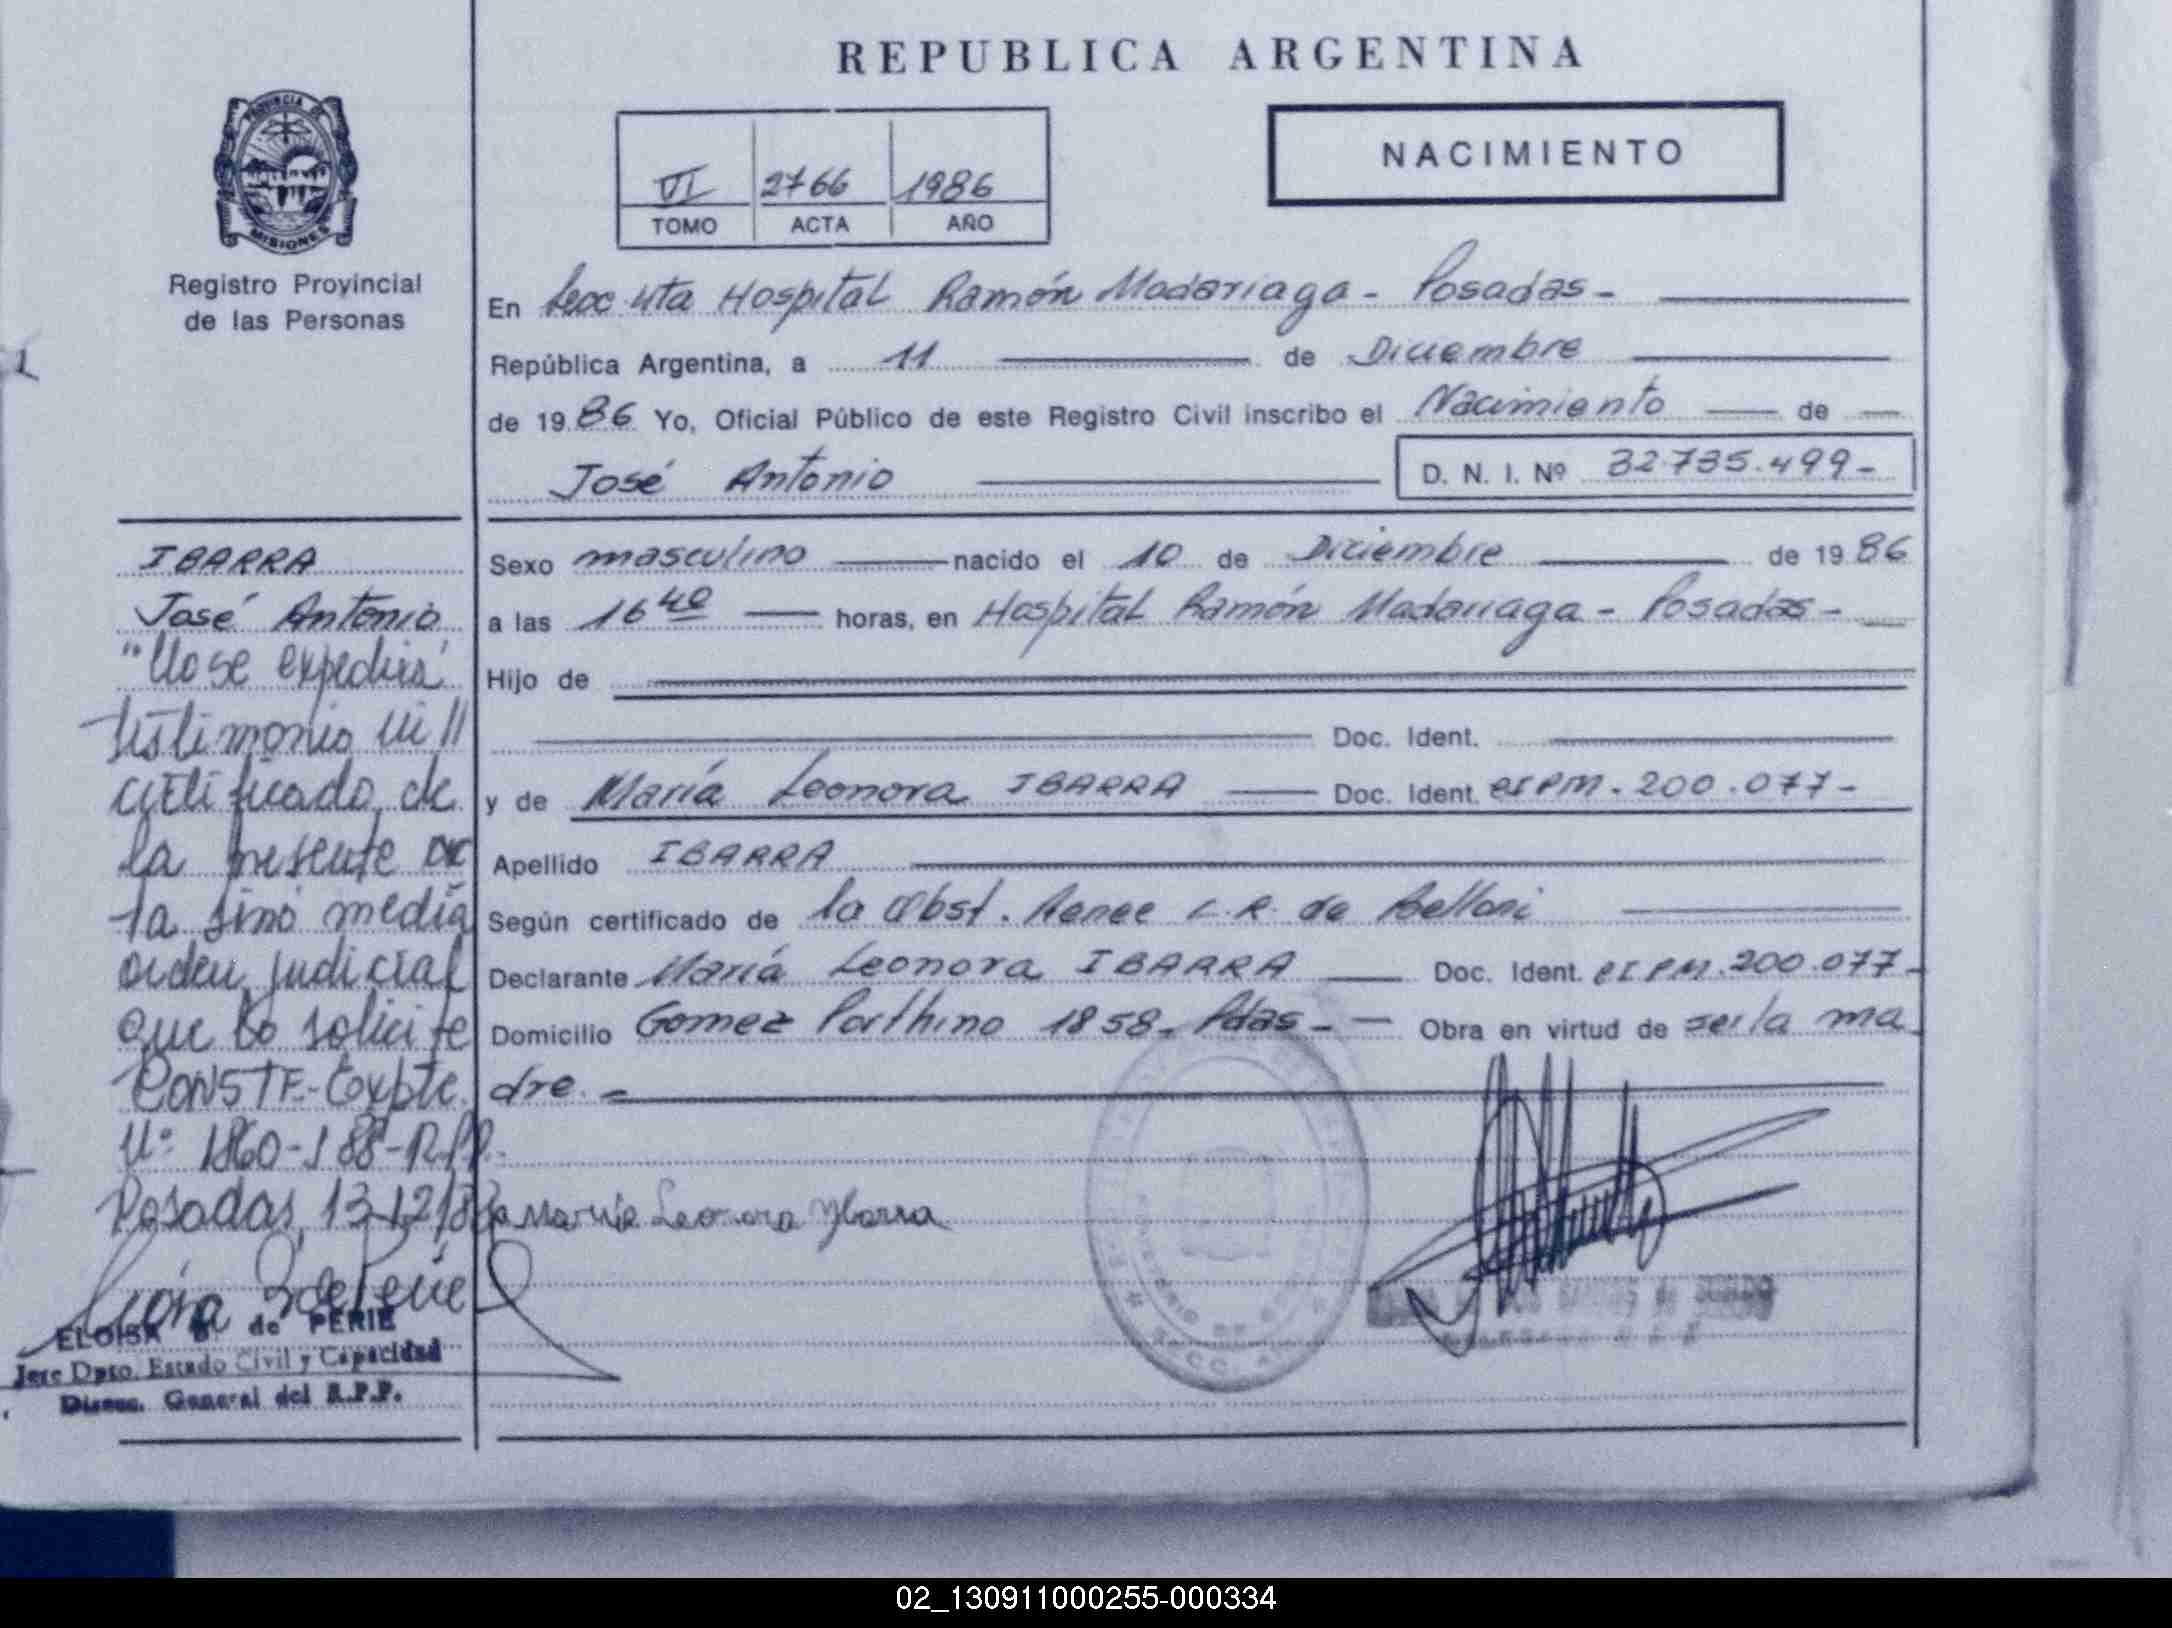 REPUBLICA ARGENTINA
PROVINCIA DE
MISIONES
Registro Provincial
de las Personas
NACIMIENTO
VI 2766 1986
TOMO ACTA AÑO
En Secc 4ta Hospital Ramón Madariaga - Posadas -
República Argentina, a 11 de Diciembre
de 1986 Yo, Oficial Público de este Registro Civil inscribo el Nacimiento de
José Antonio D. N. I. Nº 32.735.499-
Sexo masculino nacido el 10 de Diciembre de 1986
a las 16 40 horas, en Hospital Ramón Madariaga - Posadas -
Hijo de
Doc. Ident.
y de María Leonora IBARRA Doc. Ident. CIPM. 200.077-
Apellido IBARRA
Según certificado de la Obst. Renee L.R. de Belloni
Declarante María Leonora IBARRA Doc. Ident. CIPM. 200.077-
Domicilio Gomez Porthino 1858- Pdas - Obra en virtud de ser la ma
dre. -
Maria Leonora Ybarra
IBARRA
José Antonio
"No se expedirá
testimonio ni //
certificado de
la presente ac
ta sino media
orden judicial
que lo solicite
CONSTE- Expte.
Nº 1860-I 88-R.P.P.
Posadas, 13-12-88
ELOISA B. de PERIE
Jefe Dpto. Estado Civil y Capacidad
Direcc. General del R.P.P.
02_130911000255-000334